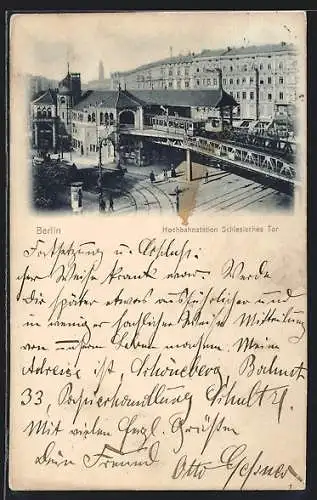 Berlin
Hochbahnstation Schlesisches Tor
Fortsetzung u. Schluss:
der Weise krank war. Werde
Dir später etwas ausführlicher und
in weniger sachlicher Weise Mitteilung
von unserem machen. Meine
Adresse ist, Schöneberg, Bahnst
33, Papierhandlung Schultz.
Mit vielen herzl. Grüßen
Dein Freund Otto Gessner